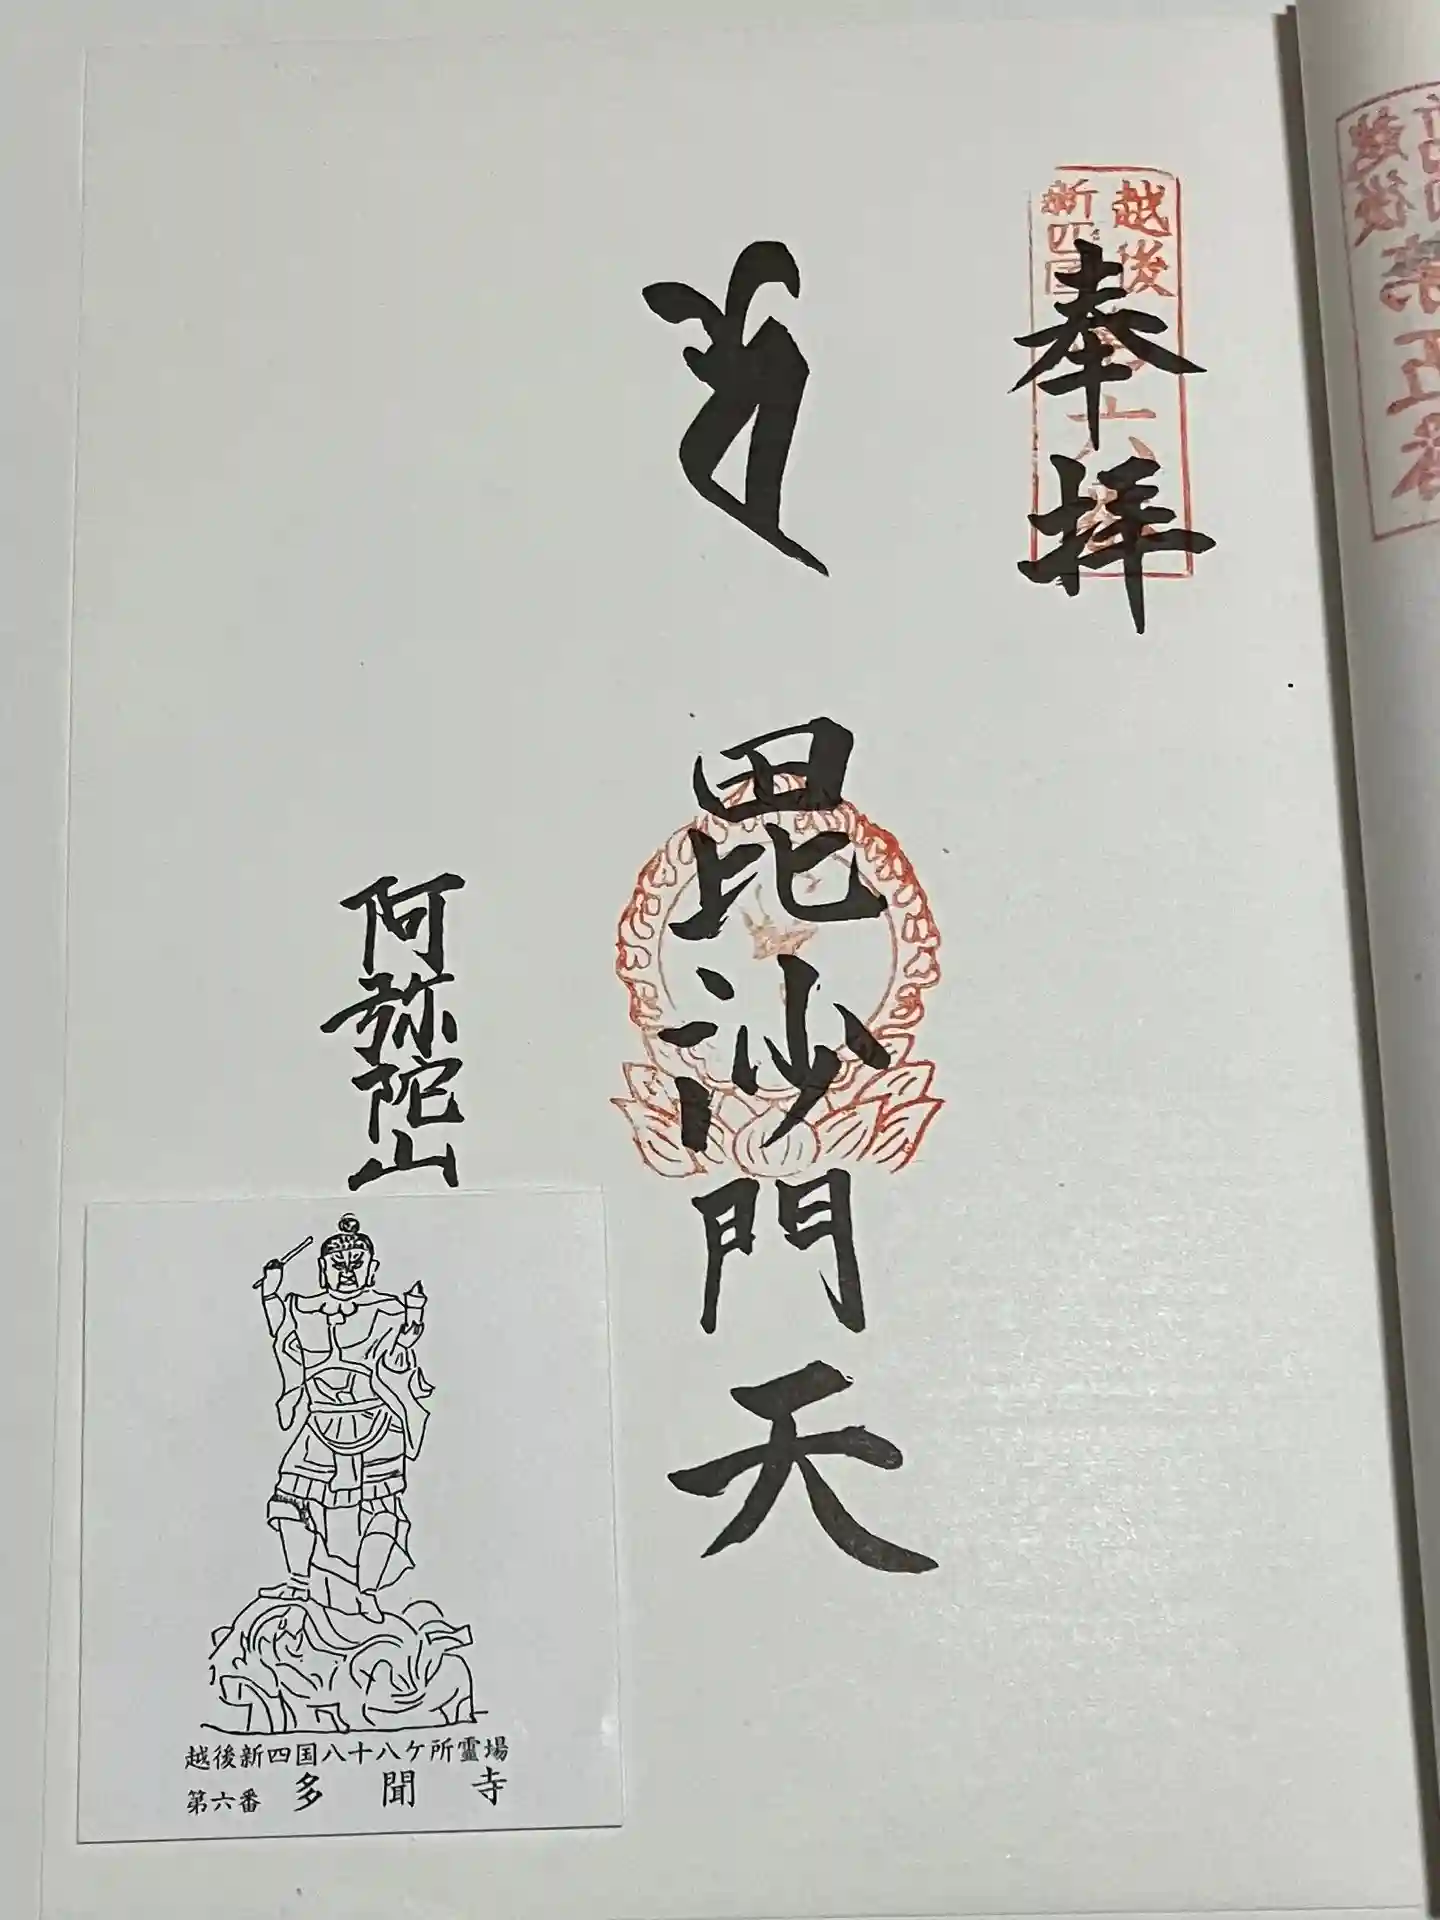 奉拝
越後
新四国
第六番
毘沙門天
阿弥陀山
越後新四国八十八ケ所霊場
第六番 多聞寺
越後
第五番